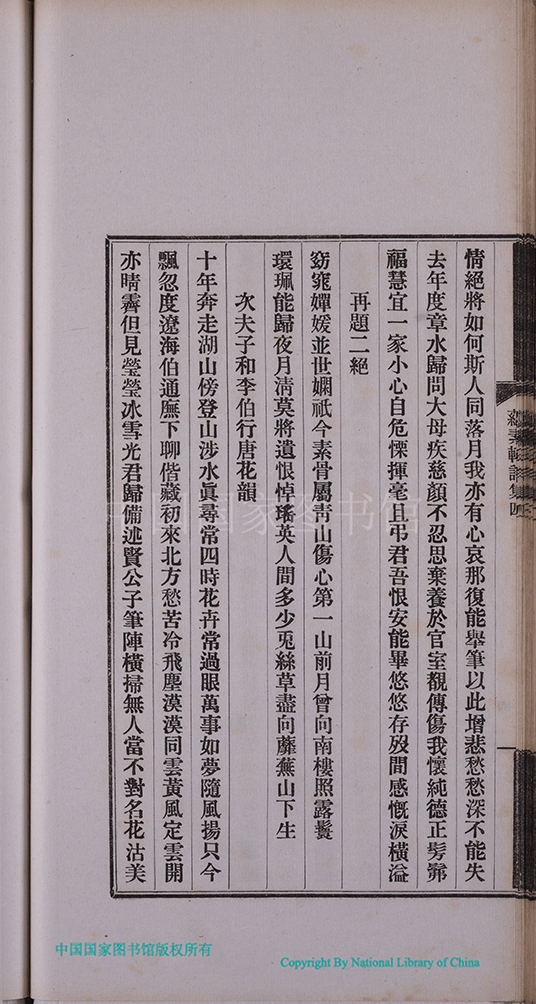 情絕將如何斯人同落月我亦有心哀那復能舉筆以此增悲愁愁深不能失
去年度章水歸問大母疾慈顏不忍思棄養於官室覩傳傷我懷純德正髣髴
福慧宜一家小心自危慄揮毫且弔君吾恨安能畢悠悠存歿間感慨淚橫溢
再題二絕
窈窕嬋媛並世嫻祇今素骨屬靑山傷心第一山前月曾向南樓照露鬟
環珮能歸夜月淸莫將遺恨悼瑤英人間多少兎絲草盡向蘼蕪山下生
次夫子和李伯行唐花韻
十年奔走湖山傍登山涉水眞尋常四時花卉常過眼萬事如夢隨風揚只今
飄忽度遼海伯通廡下聊偕藏初來北方愁苦冷飛塵漠漠同雲黃風定雲開
亦晴霽但見瑩瑩冰雪光君歸備述賢公子筆陣橫掃無人當不對名花沽美
中国国家图书馆
中国国家图书馆版权所有
Copyright By National Library of China